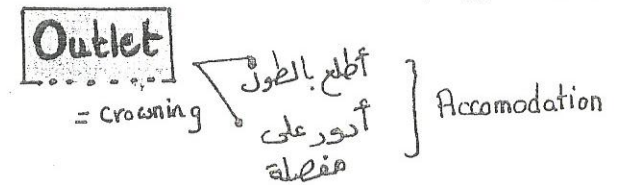 Outlet
= crowning
أطلع بالطول
أدور على
مفصلة
Accomodation